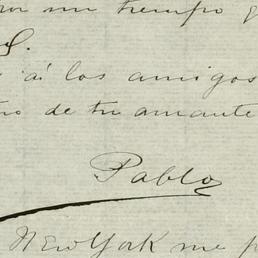 por un tiempo
S.
a' los amigos
de tu amante
Pablo
New York me